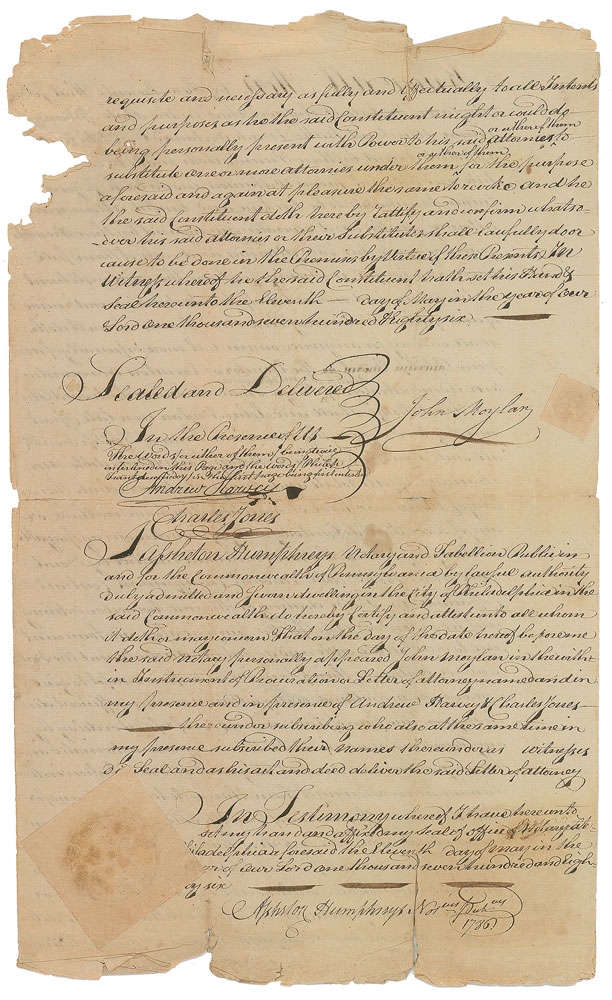 requisite and necessary as fully and Effectually to all Intents
and purposes as he the said Constituent might or could do
or either of them
being personally present with Power to his said attornies to
or either of them
substitute one or more attornies under them for the purpose
aforesaid and again at pleasure the same to revoke and he
the said Constituent doth hereby Rattify and confirm whatso-
-ever his said attornies or their Substitutes shall Lawfully do or
cause to be done in the Premises by Virtue of these Presents In
Witness whereof he the said Constituent hath set his Hand &
Seal hereunto the Eleventh — day of May in the year of our
Lord one thousand seven hundred & Eighty six —
Sealed and Delivered
John Moylan
In the Presence of Us
The words or either of them being twice
interlined in this Page and the words
the first page being first
Andrew Harvey
Charles Jones
I Assheton Humphreys Notary and Tabellion Publick in
and for the Commonwealth of Pennsylvania by lawful authority
Duly admitted and Sworn dwelling in the City of Philadelphia in the
said Commonwealth do hereby Certify and attest unto all whom
it doth or may concern That on the day of the date hereof before me
the said Notary personally appeared John Moylan in the with-
in Instrument of Procuration or Letter of attorney named and in
my presence and in presence of Andrew Harvey & Charles Jones —
— thereunder subscribing who also at the same time in
my presence subscribed their Names thereunder as witnesses
Seal and as his act and deed deliver the said Letter of attorney
In Testimony whereof I have hereunto
set my hand and affixt my seal of office
iladelphia aforesaid the Eleventh day of May in the
of our Lord one thousand seven hundred and Eigh-
ty six — — —
Assheton Humphreys Not ius Pub cus
1786